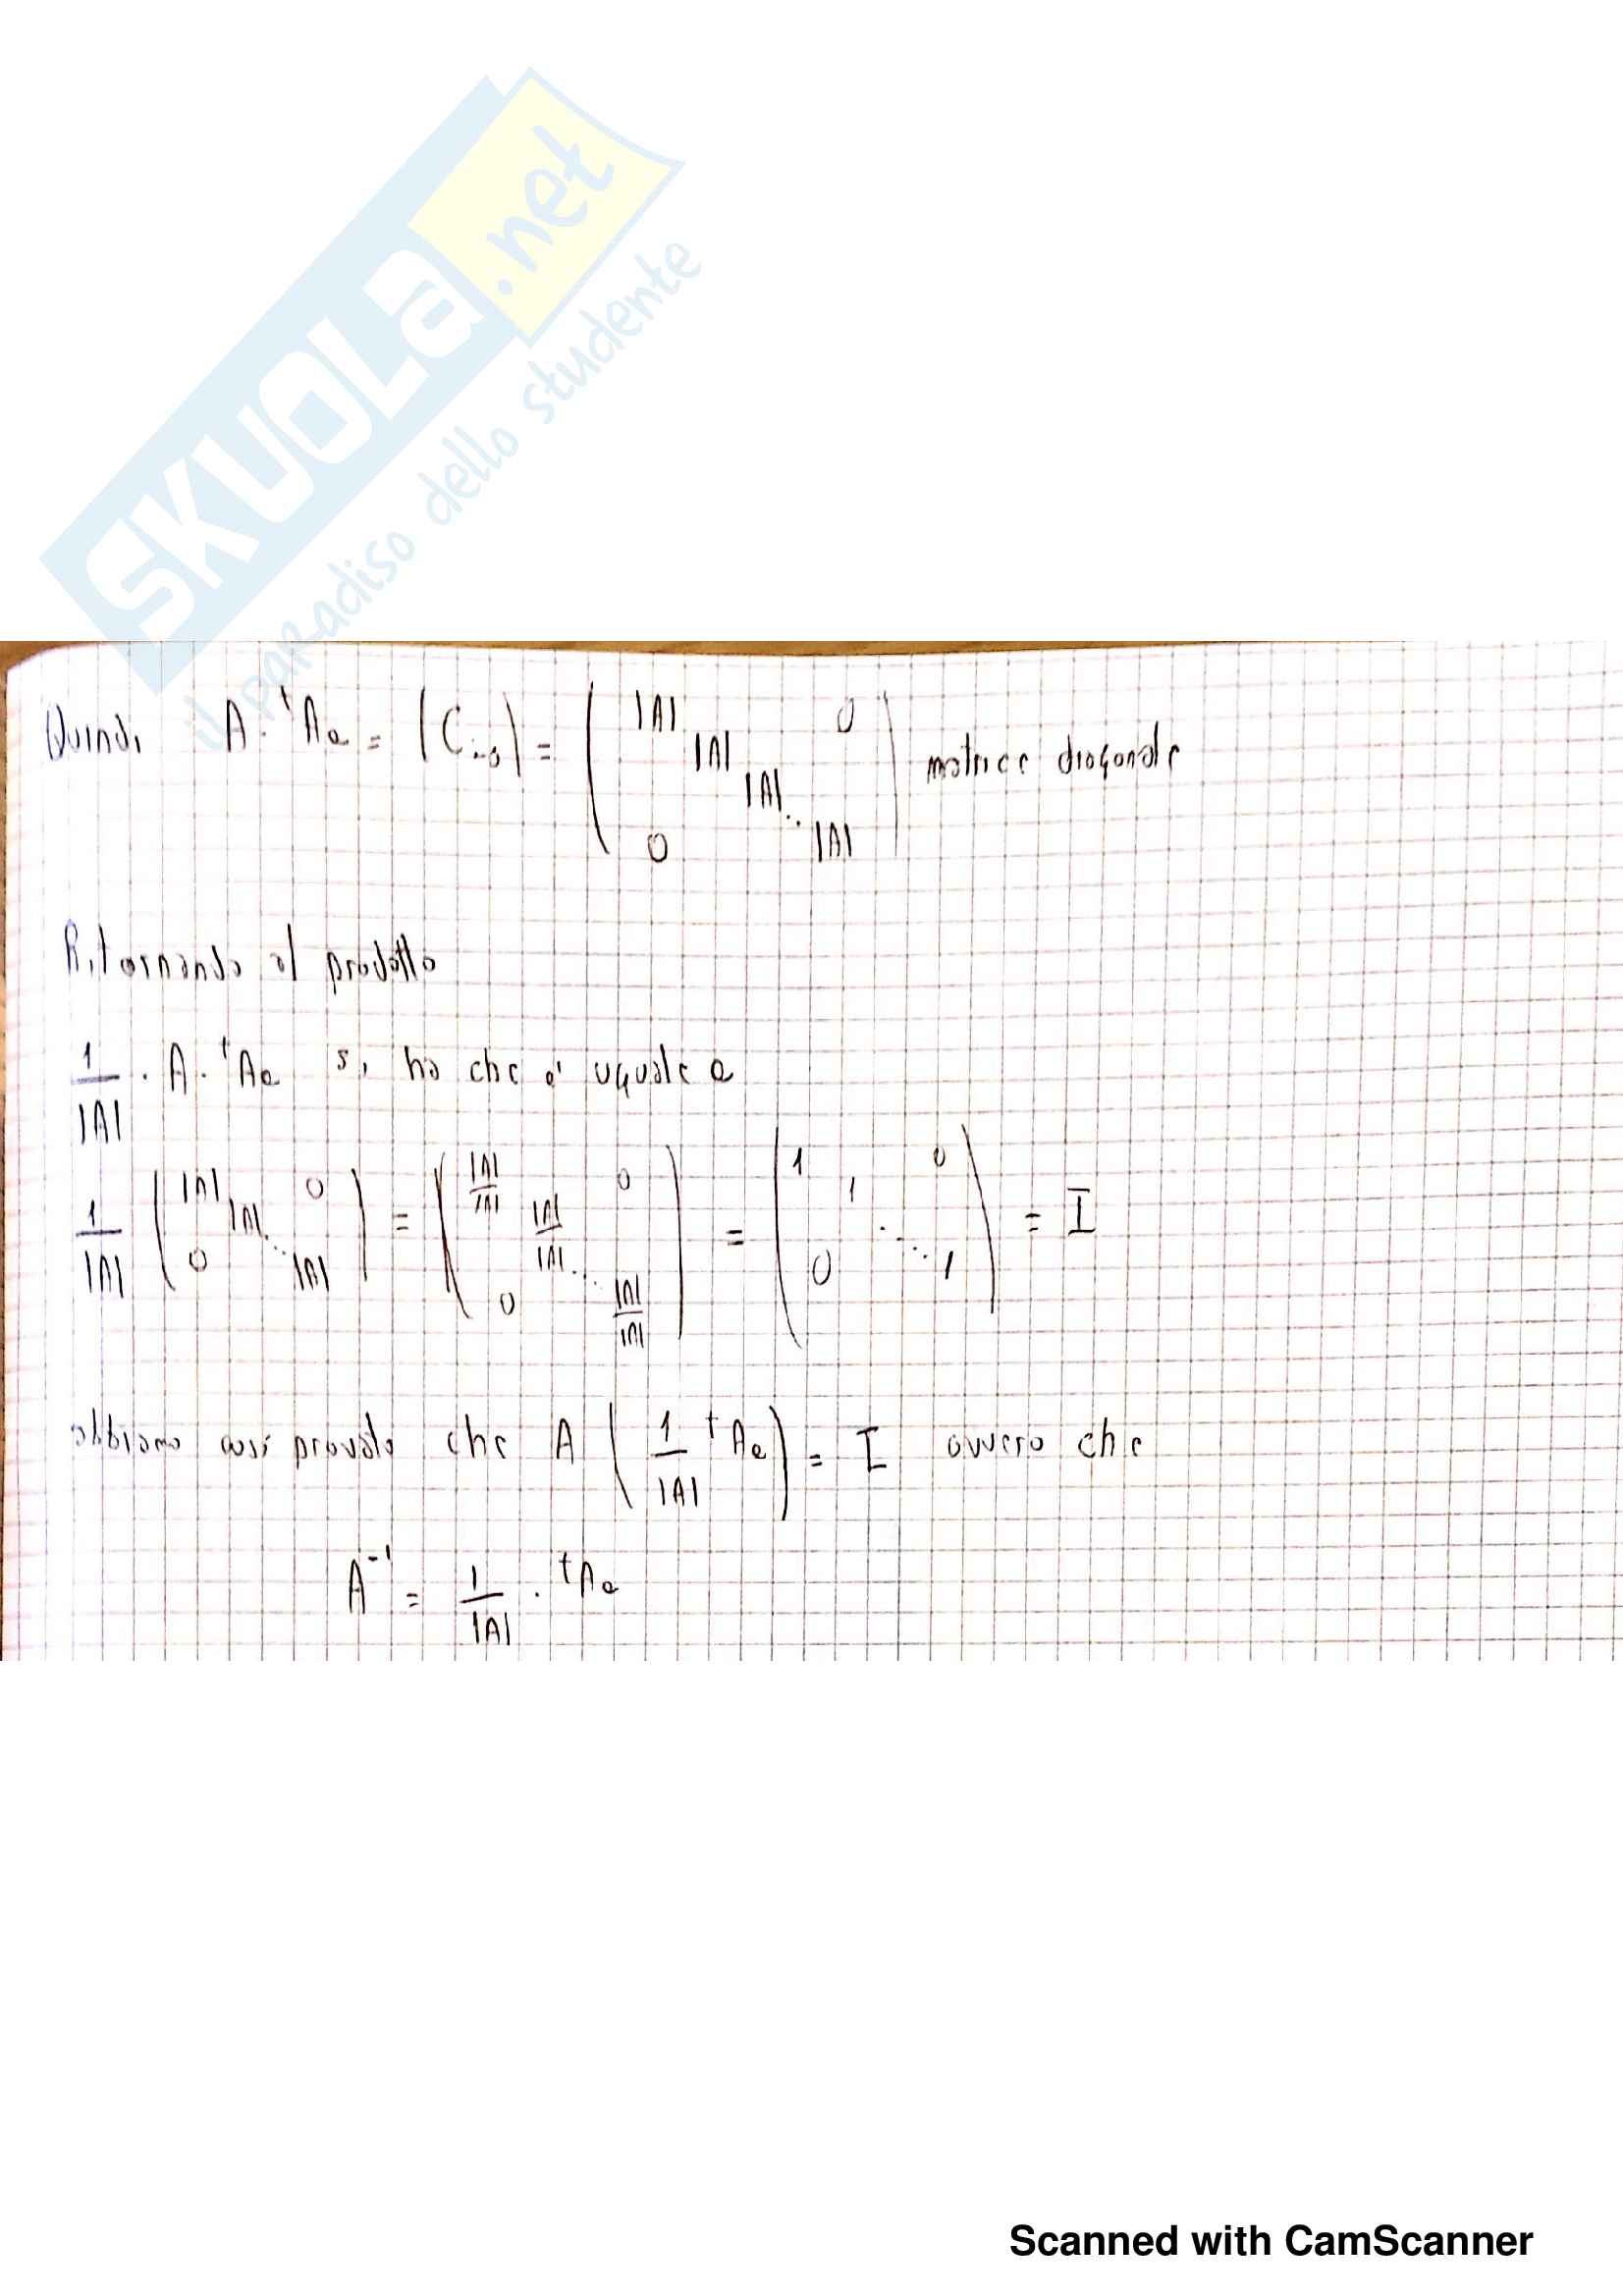 SKUOLA.net
il paradiso dello studente
Quindi A · ᵗAa = (C) = ( |A| |A| |A| ⋱ |A| 0 0 ) matrice diagonale
Ritornando al prodotto
1/|A| · A · ᵗAa si ha che è uguale a
1/|A| ( |A| |A| ⋱ |A| 0 0 ) = ( |A|/|A| |A|/|A| ⋱ |A|/|A| 0 0 ) = ( 1 1 ⋱ 1 0 0 ) = I
abbiamo così provato che A ( 1/|A| ᵗAa ) = I ovvero che
A⁻¹ = 1/|A| · ᵗAa
Scanned with CamScanner